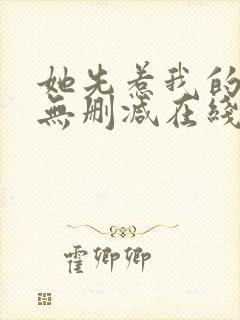 她先惹我的
無删减在綫
霍卿卿